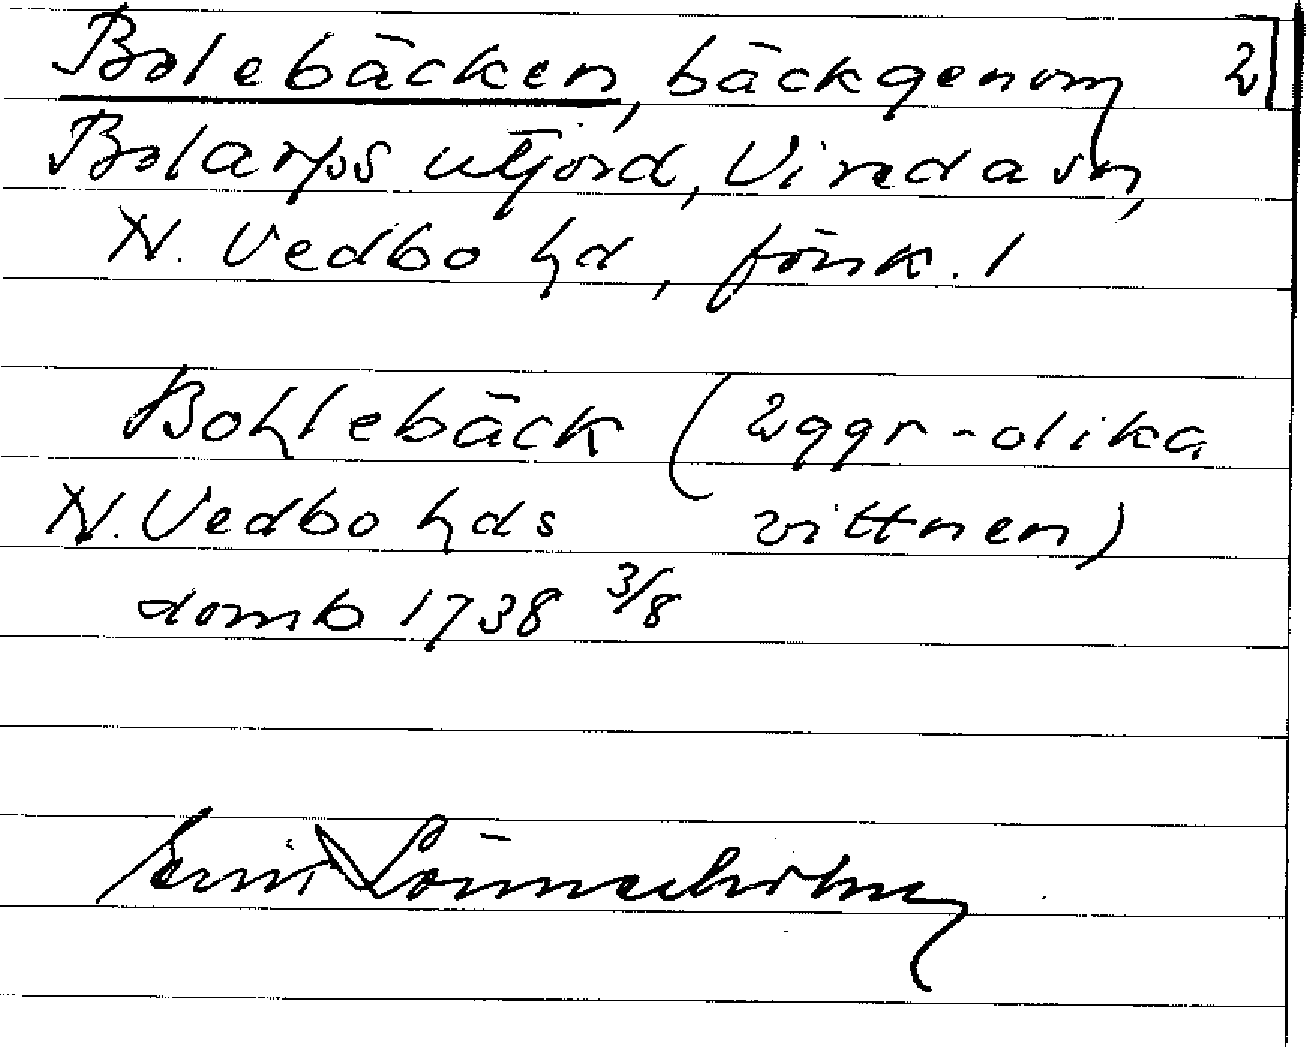 Bolebäcken, bäck genom 2
Bolarps utjord, Vireda sn,
N. Vedbo hd, fönk. 1
Bohlebäck (2 ggr - olika
N. Vedbo hds vittnen)
domb 1738 3/8